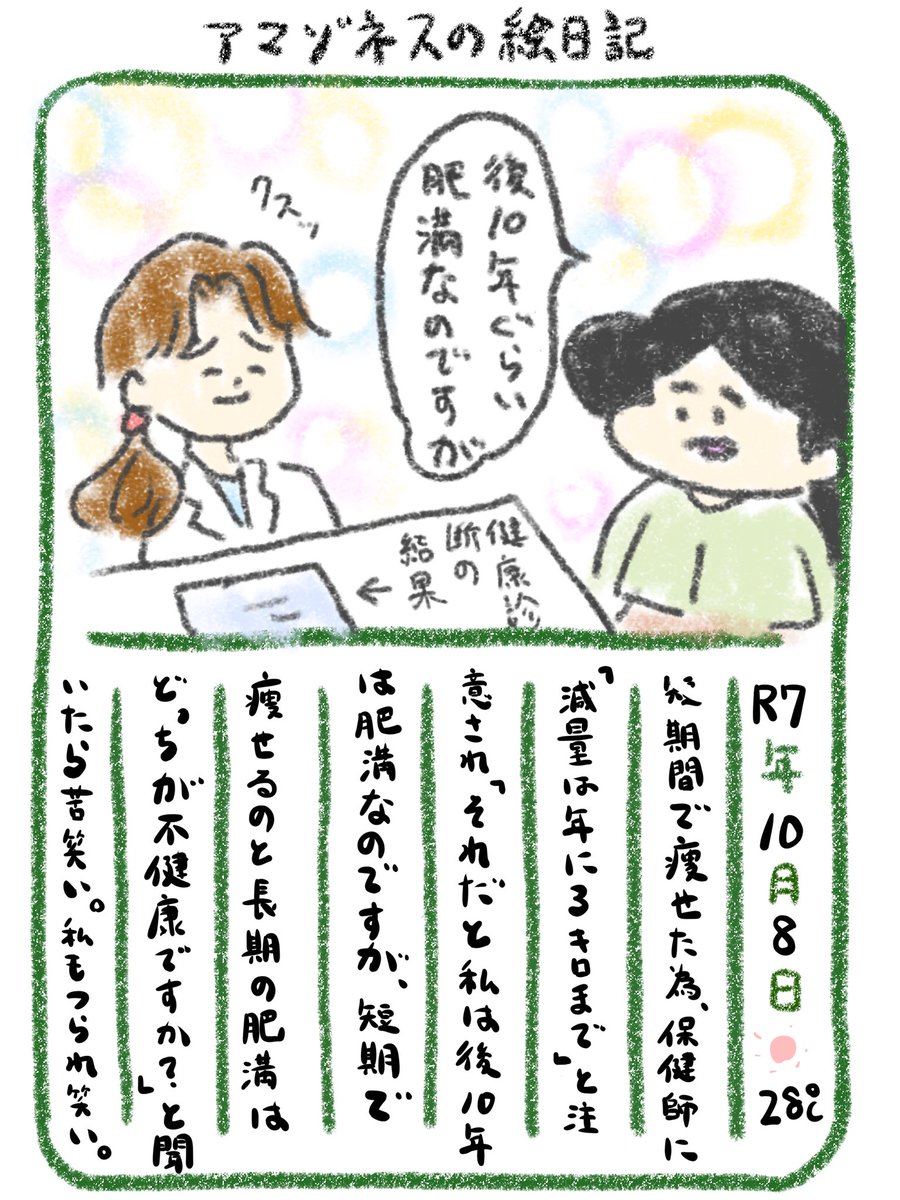 アマゾネスの絵日記
後10年ぐらい
肥満なのですが
クスッ
健康診
断の
結果
←
R7年10月8日 28℃
短期間で痩せた為、保健師に
「減量は年に3キロまで」と注
意され「それだと私は後10年
は肥満なのですが、短期で
痩せるのと長期の肥満は
どっちが不健康ですか？」と聞
いたら苦笑い。私もつられ笑い。